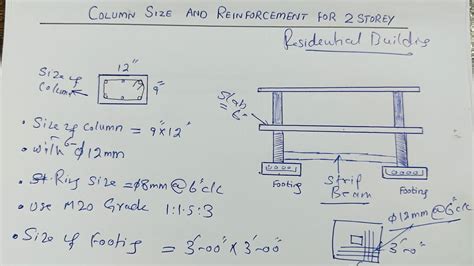 COLUMN SIZE AND REINFORCEMENT FOR 2 STOREY
Residential Building
Size of
Column
12"
9"
Slab
= 6"
• Size of Column = 9"x12"
• with 6-ϕ12mm
• St. Ring Size = ϕ8mm@6"c/c
• Use M20 Grade 1:1.5:3
• Size of Footing = 3'-00" x 3'-00"
Footing
Strip
Beam
Footing
ϕ12mm@6"
c/c
3'-00"